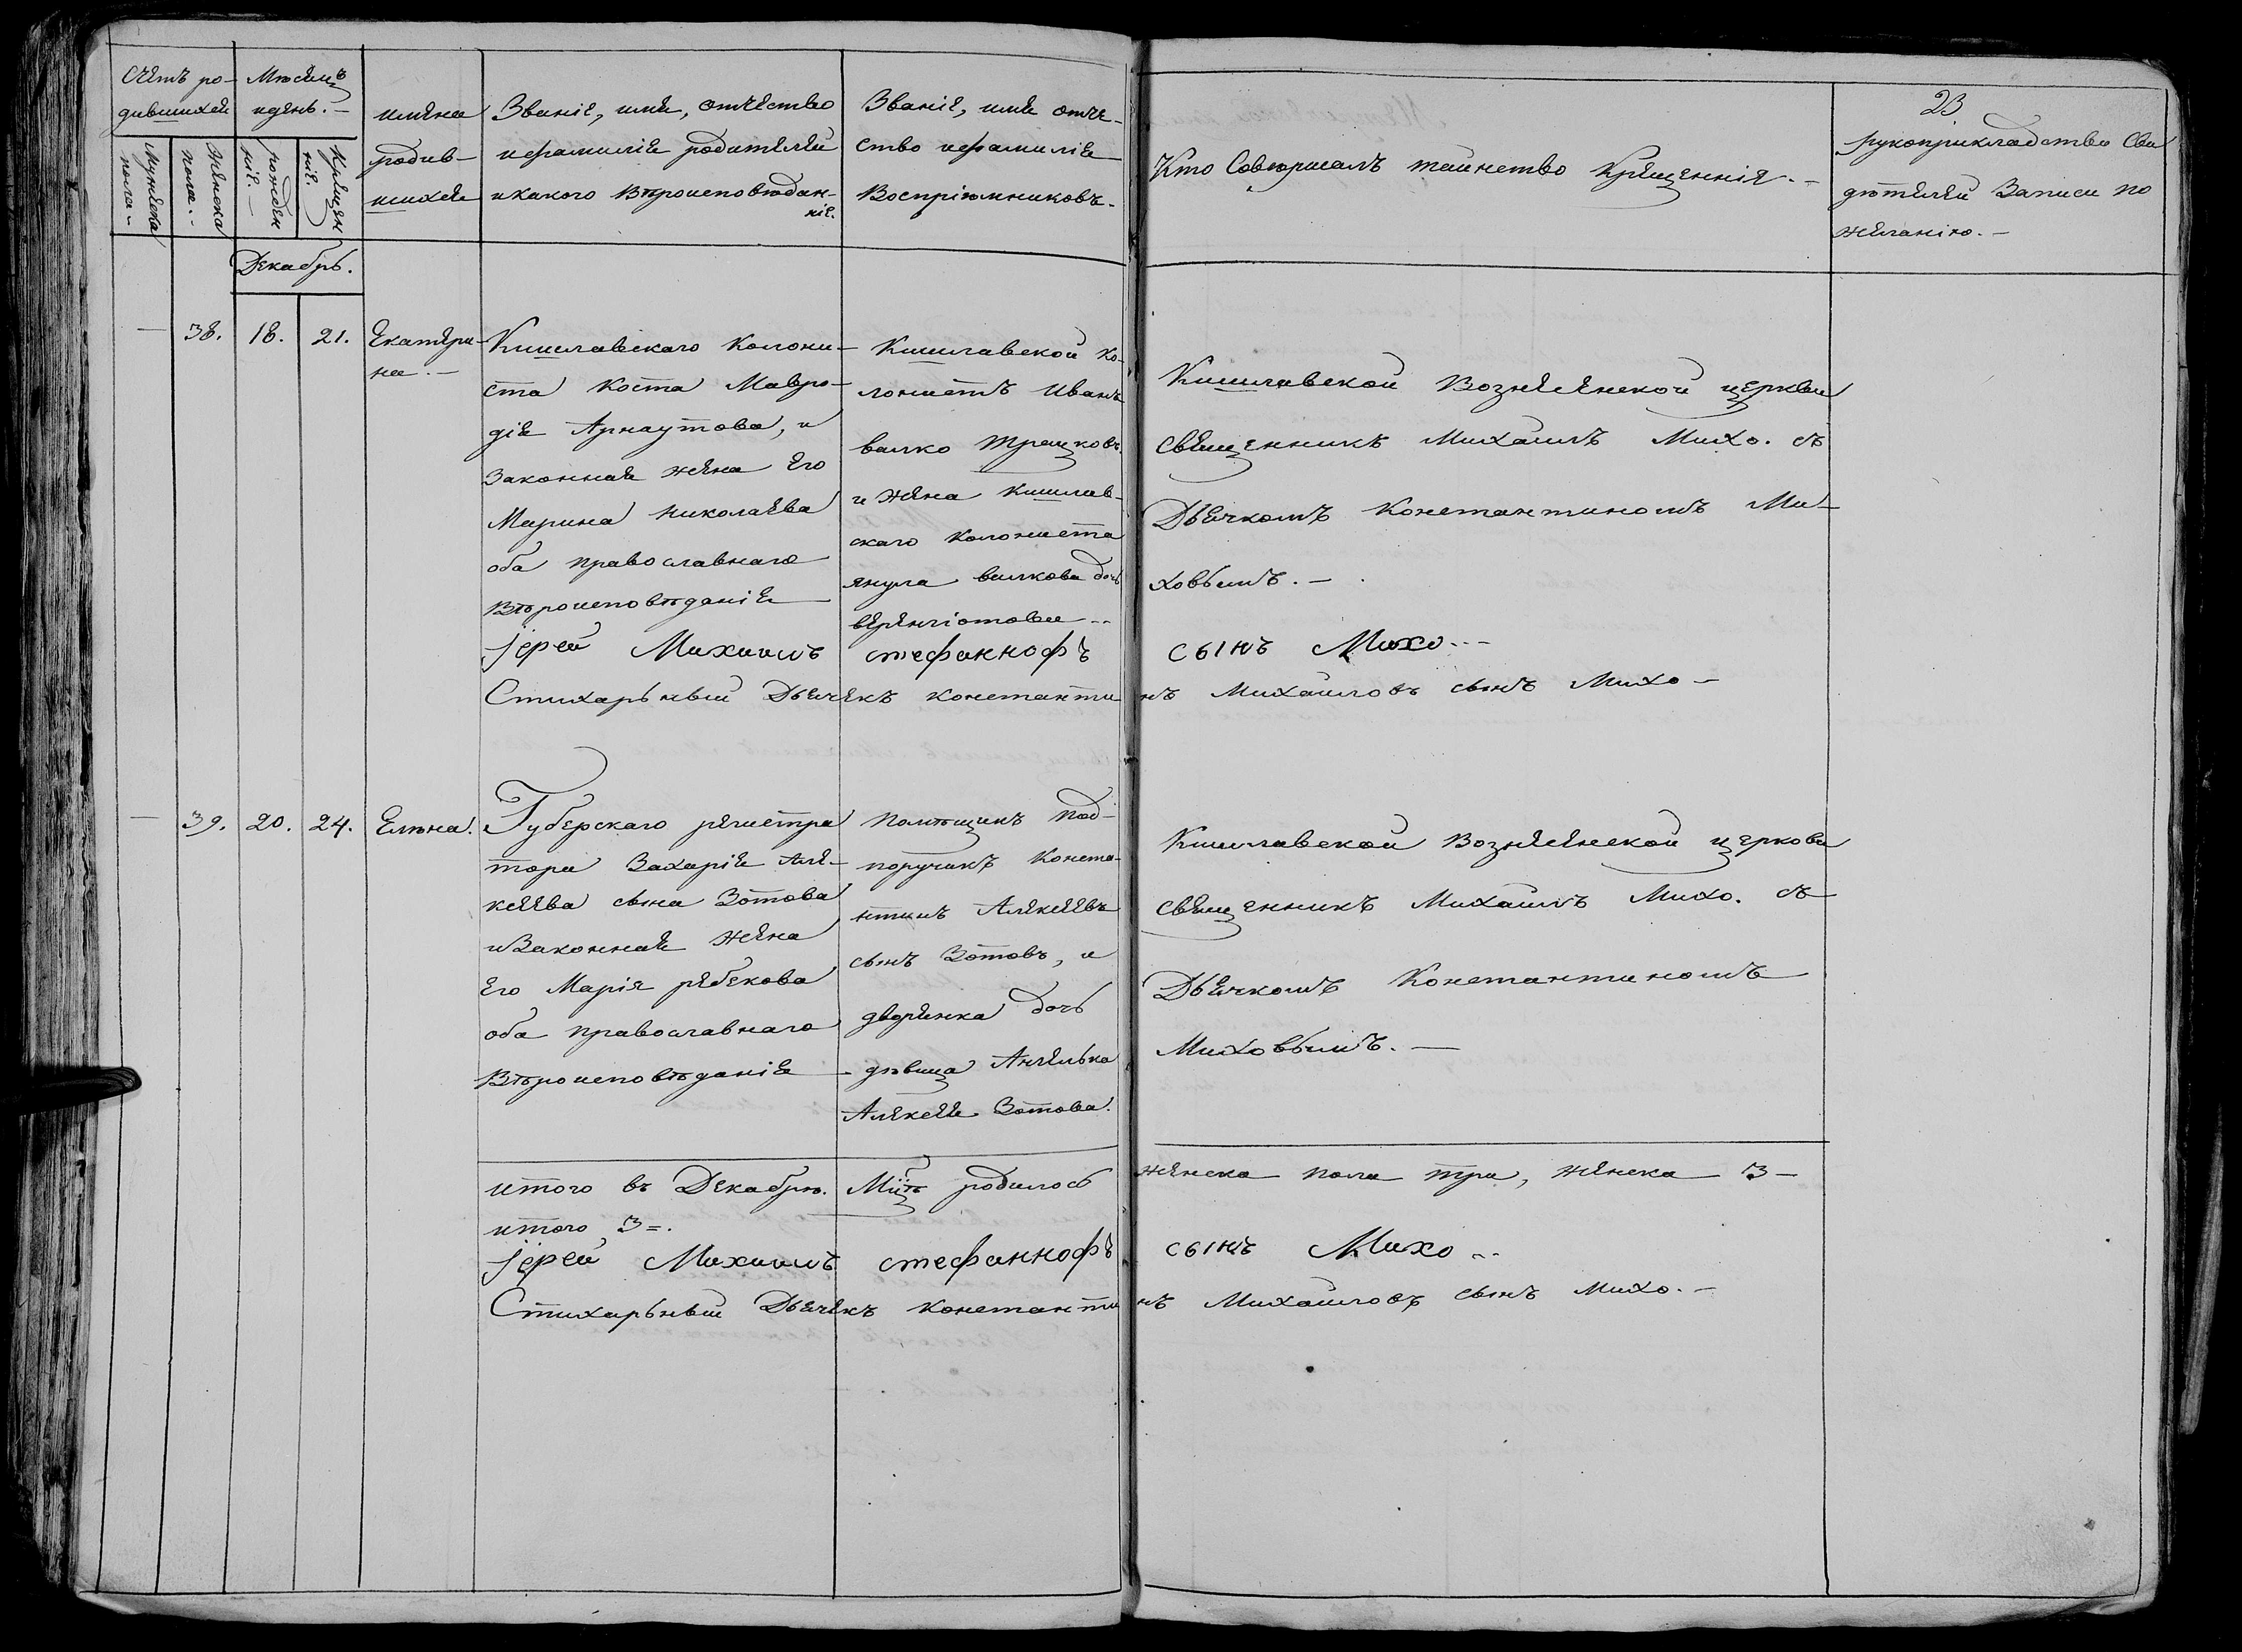 Счетъ ро-
дившихся
Мѣсецъ
идень. -
имена
родив-
шихся
Званіе, имя, отчество
ифамилія родителей
икакого Вѣроисповѣдан-
ніе.
Званіе, имя отче-
ство ифамилія
Воспріемниковъ.
Кто Совершалъ таинство Крещеннія. -
23
рукоприкладство Сви
дѣтелей Записи по
желанію. -
Мужеска
пола. -
Женска
пола. -
рожден
ніе. -
Крещен
ніе.
Декабрь.
— 38. 18. 21. Екатери-
на. -
Кишлавскаго Колони-
ста Коста Мавро-
дія Арнаутова, и
Законная жена Его
Марина николаева
оба православнаго
Вѣроисповѣданія
Кишлавской ко-
лонистъ Иванъ
валко Трацковъ
и жена Кишлав-
скаго колониста
янула валкова дочь
Кишлавской Вознесенской церкви
священникъ Михаилъ Михо. съ
Дьячкомъ Константиномъ Ми-
ховымъ. -
Іерей Михаилъ стефаннофъ сынъ Михо...
Стихарьный Дьячекъ константинъ Михаиловъ сынъ Михо -
— 39. 20. 24. Елѣна.
Губерскаго регистра
тора Захарія Але-
ксеева сына Зотова
иЗаконная жена
Его Марія рябекова
оба православнаго
Вѣроисповѣданія
помѣщикъ под-
поручикъ Конста-
нтинъ Алексеевъ
сынъ Зотовъ, и
дворянка дочь
дѣвица Ангелька
Алексея Зотова.
Кишлавской Вознесенской церкови
священникъ Михаилъ Михо. съ
Дьячкомъ Константиномъ
Миховымъ. -
итого въ Декабрѣ. Мцѣ родилось женска пола три, женска 3 -
итого 3 =.
Іерей Михаилъ стефаннофъ сынъ Михо...
Стихарьный Дьячекъ константинъ Михаиловъ сынъ Михо. -